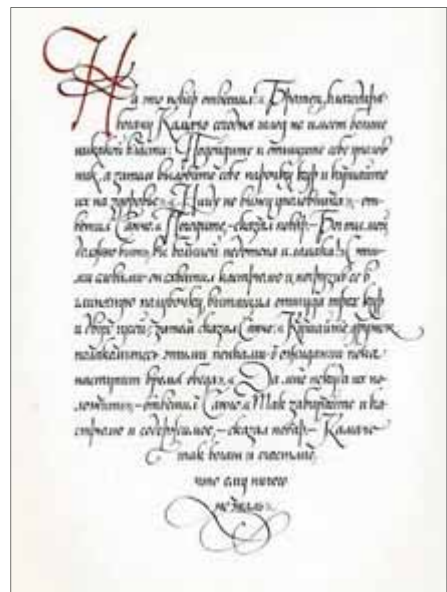 На это повар ответил: «Братец, благодаря
богачу Камачо сегодня голод не имеет больше
никакой власти. Подойдите и отыщите себе уполов-
ник, а затем выловите себе парочку кур и кушайте
их на здоровье». «Нигде не вижу уполовника», – от-
ветил Санчо. «Погодите, – сказал повар. – Боже мой,
должно быть, вы большой недотёпа и ломака!» С эти-
ми словами он схватил кастрюлю и, погрузив её в
глиняную полубочку, вытащил оттуда трёх кур
и двух гусей; затем сказал Санчо: «Кушайте, дружок,
полакомьтесь этими пенками в ожидании, пока
наступит время обеда». «Да мне некуда их по-
ложить», – ответил Санчо. «Так забирайте и ка-
стрюлю и содержимое, – сказал повар, – Камачо
так богат и счастлив,
что ему ничего
не жаль».